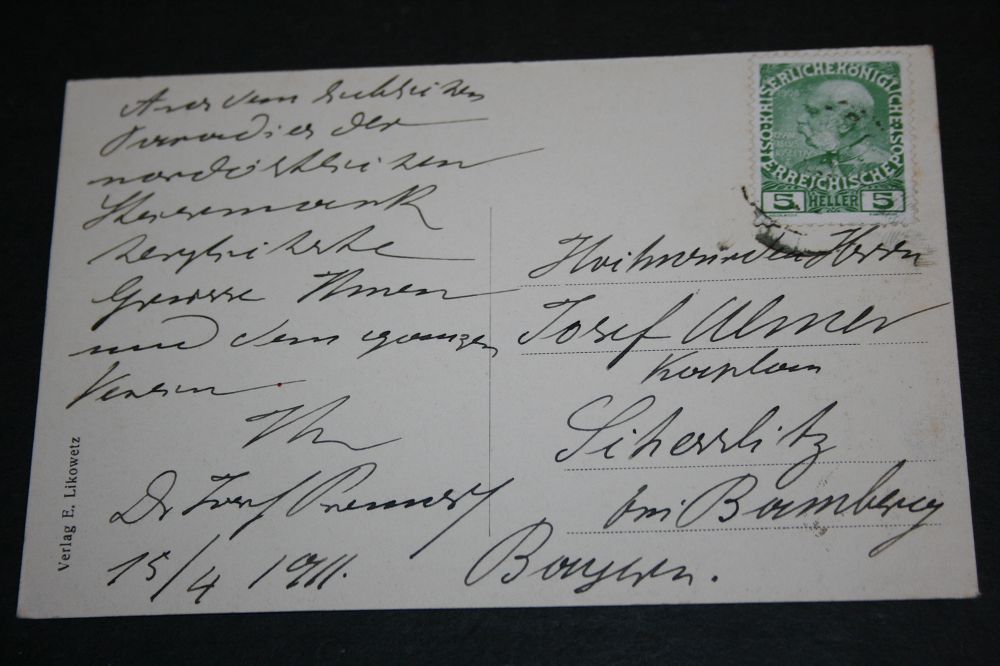 Aus dem lieblichen
Paradies der
nordöstlichen
Steiermark
herzlichste
Grüsse Ihnen
und dem ganzen
Verein
Ihr
Dr Josef
15/4 1911.
Verlag E. Likowetz
KAISERLICHEKÖNIGLICHE
ÖSTERREICHISCHE POST
5 HELLER 5
Hochwürden Herrn
Josef Ulmer
Kaplan
Schesslitz
bei Bamberg
Bayern.